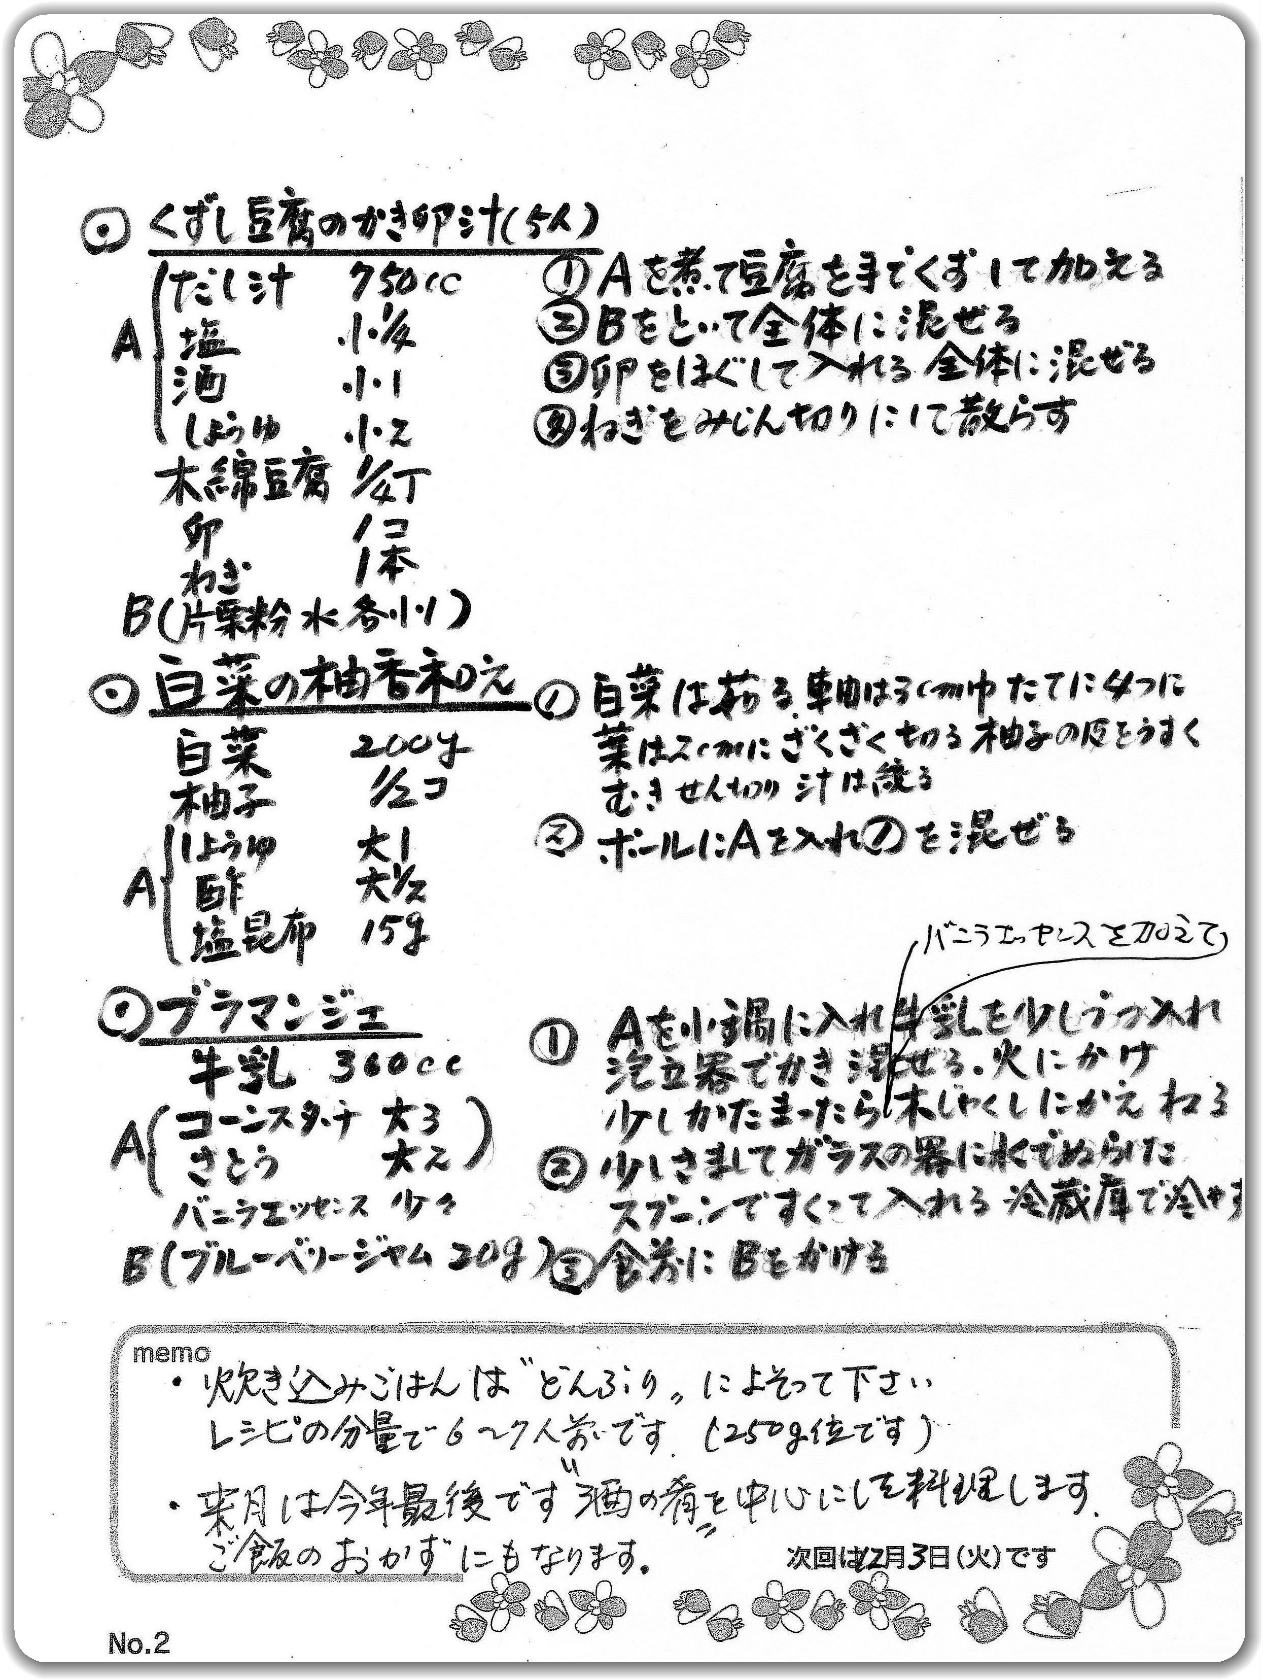 ⊙くずし豆腐のかき卵汁(5人)
A
だし汁 750cc
塩 小1/4
酒 小1
しょうゆ 小2
木綿豆腐 1/4丁
卵 1コ
ねぎ 1本
B(片栗粉 水 各小1)
①Aを煮て豆腐を手でくずして加える
②Bをといて全体に混ぜる
③卵をほぐして入れる 全体に混ぜる
④ねぎをみじん切りにして散らす
⊙白菜の柚香和え
白菜 200g
柚子 1/2コ
A
しょうゆ 大1
酢 大1/2
塩昆布 15g
①白菜は茹る、軸は3cm巾たてに4つに
葉は2cmにざくざく切る 柚子の皮をうすく
むきせん切り 汁は絞る
②ボールにAを入れ①を混ぜる
⊙ブラマンジェ
牛乳 360cc
A
コーンスターチ 大3
さとう 大2
バニラエッセンス 少々
B(ブルーベリージャム 20g)
バニラエッセンスを加えて
①Aを小鍋に入れ牛乳を少しづつ入れ
泡立器でかき混ぜる。火にかけ
少しかたまったら木じゃくしにかえ ねる
②少しさましてガラスの器に水でぬらした
スプーンですくって入れる 冷蔵庫で冷やす
③食前にBをかける
memo
・炊き込みごはんは〝どんぶり〟によそって下さい
レシピの分量で6〜7人前です (250g位です)
・来月は今年最後です〝酒の肴〟を中心にした料理します.
ご飯のおかずにもなります。
次回は12月3日(火)です
No.2